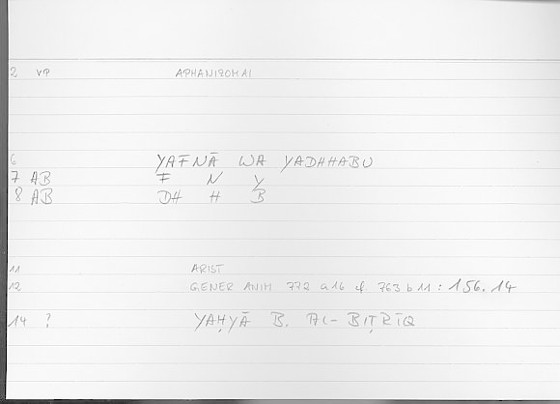 2 VP APHANIZOMAI
6 YAFNĀ WA YADAHABU
7 AB F N Y
8 AB DH H B
11 ARIST
12 GENER ANIM 772 a16 cf. 763 b11 : 156.14
14 ? YAḤYĀ B. AL-BIṬRĪQ